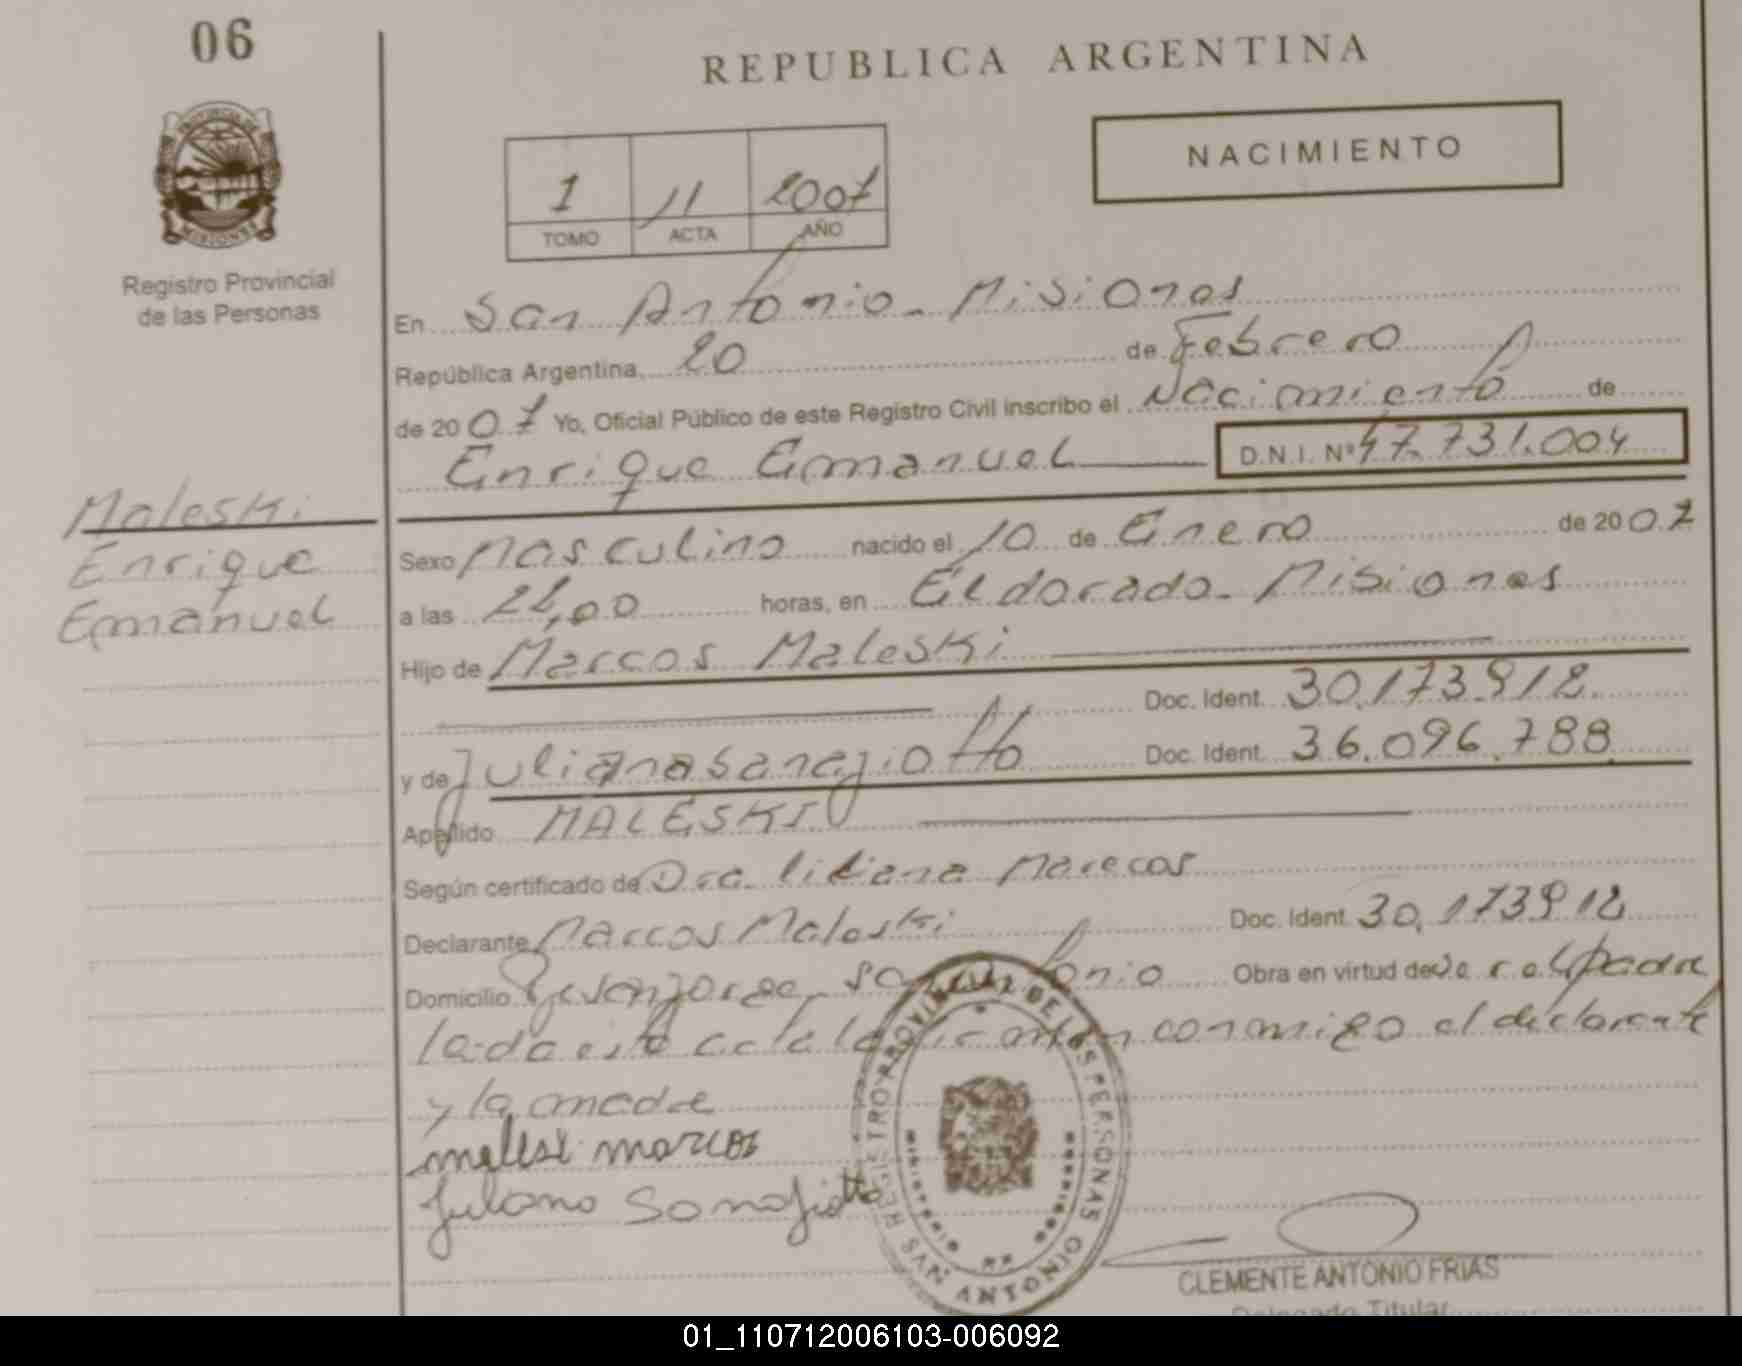 06
REPUBLICA ARGENTINA
PROVINCIA DE
MISIONES
NACIMIENTO
1 11 2007
TOMO ACTA AÑO
Registro Provincial
de las Personas
En San Antonio - Misiones
República Argentina, 20 de Febrero
de 2007 Yo, Oficial Público de este Registro Civil inscribo el Nacimiento de
Enrique Emanuel D.N.I. Nº 47.731.004
Maleski
Enrique
Emanuel
Sexo Masculino nacido el 10 de Enero de 2007
a las horas, en Eldorado - Misiones
Hijo de Marcos Maleski
Doc. Ident. 30.173.912
y de Juliana Doc. Ident. 36.096.788
Apellido MALESKI
Según certificado de Dra. Liliana Marecos
Declarante Marcos Maleski Doc. Ident. 30.173912
Domicilio San Antonio Obra en virtud de
acta conmigo el declarante
y la madre
marcos
CLEMENTE ANTONIO FRIAS
Delegado Titular
REGISTRO PROVINCIAL DE LAS PERSONAS
SAN ANTONIO
MINISTERIO
01_110712006103-006092